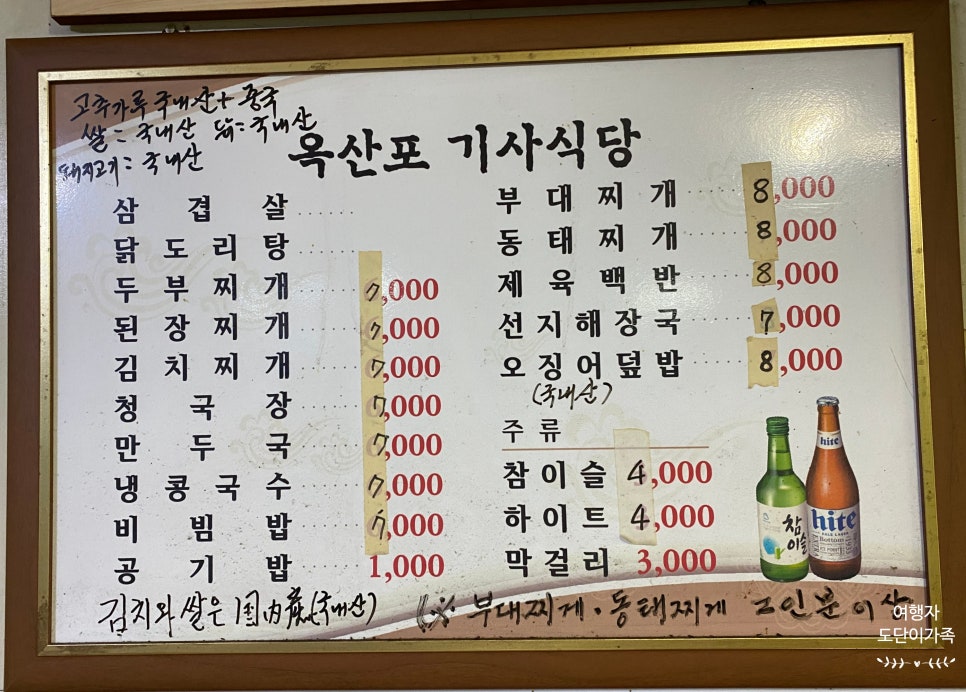 고추가루 국내산+중국
쌀=국내산 닭=국내산
돼지고기=국내산
옥산포 기사식당
삼겹살
닭도리탕
두부찌개 7,000
된장찌개 7,000
김치찌개 7,000
청국장 7,000
만두국 7,000
냉콩국수 7,000
비빔밥 7,000
공기밥 1,000
부대찌개 8,000
동태찌개 8,000
제육백반 8,000
선지해장국 7,000
오징어덮밥 8,000
(국내산)
주류
참이슬 4,000
하이트 4,000
막걸리 3,000
참이슬
hite
hite
김치와 쌀은 国内産(국내산)
부대찌게·동태찌게 2인분이상
여행자
도단이가족